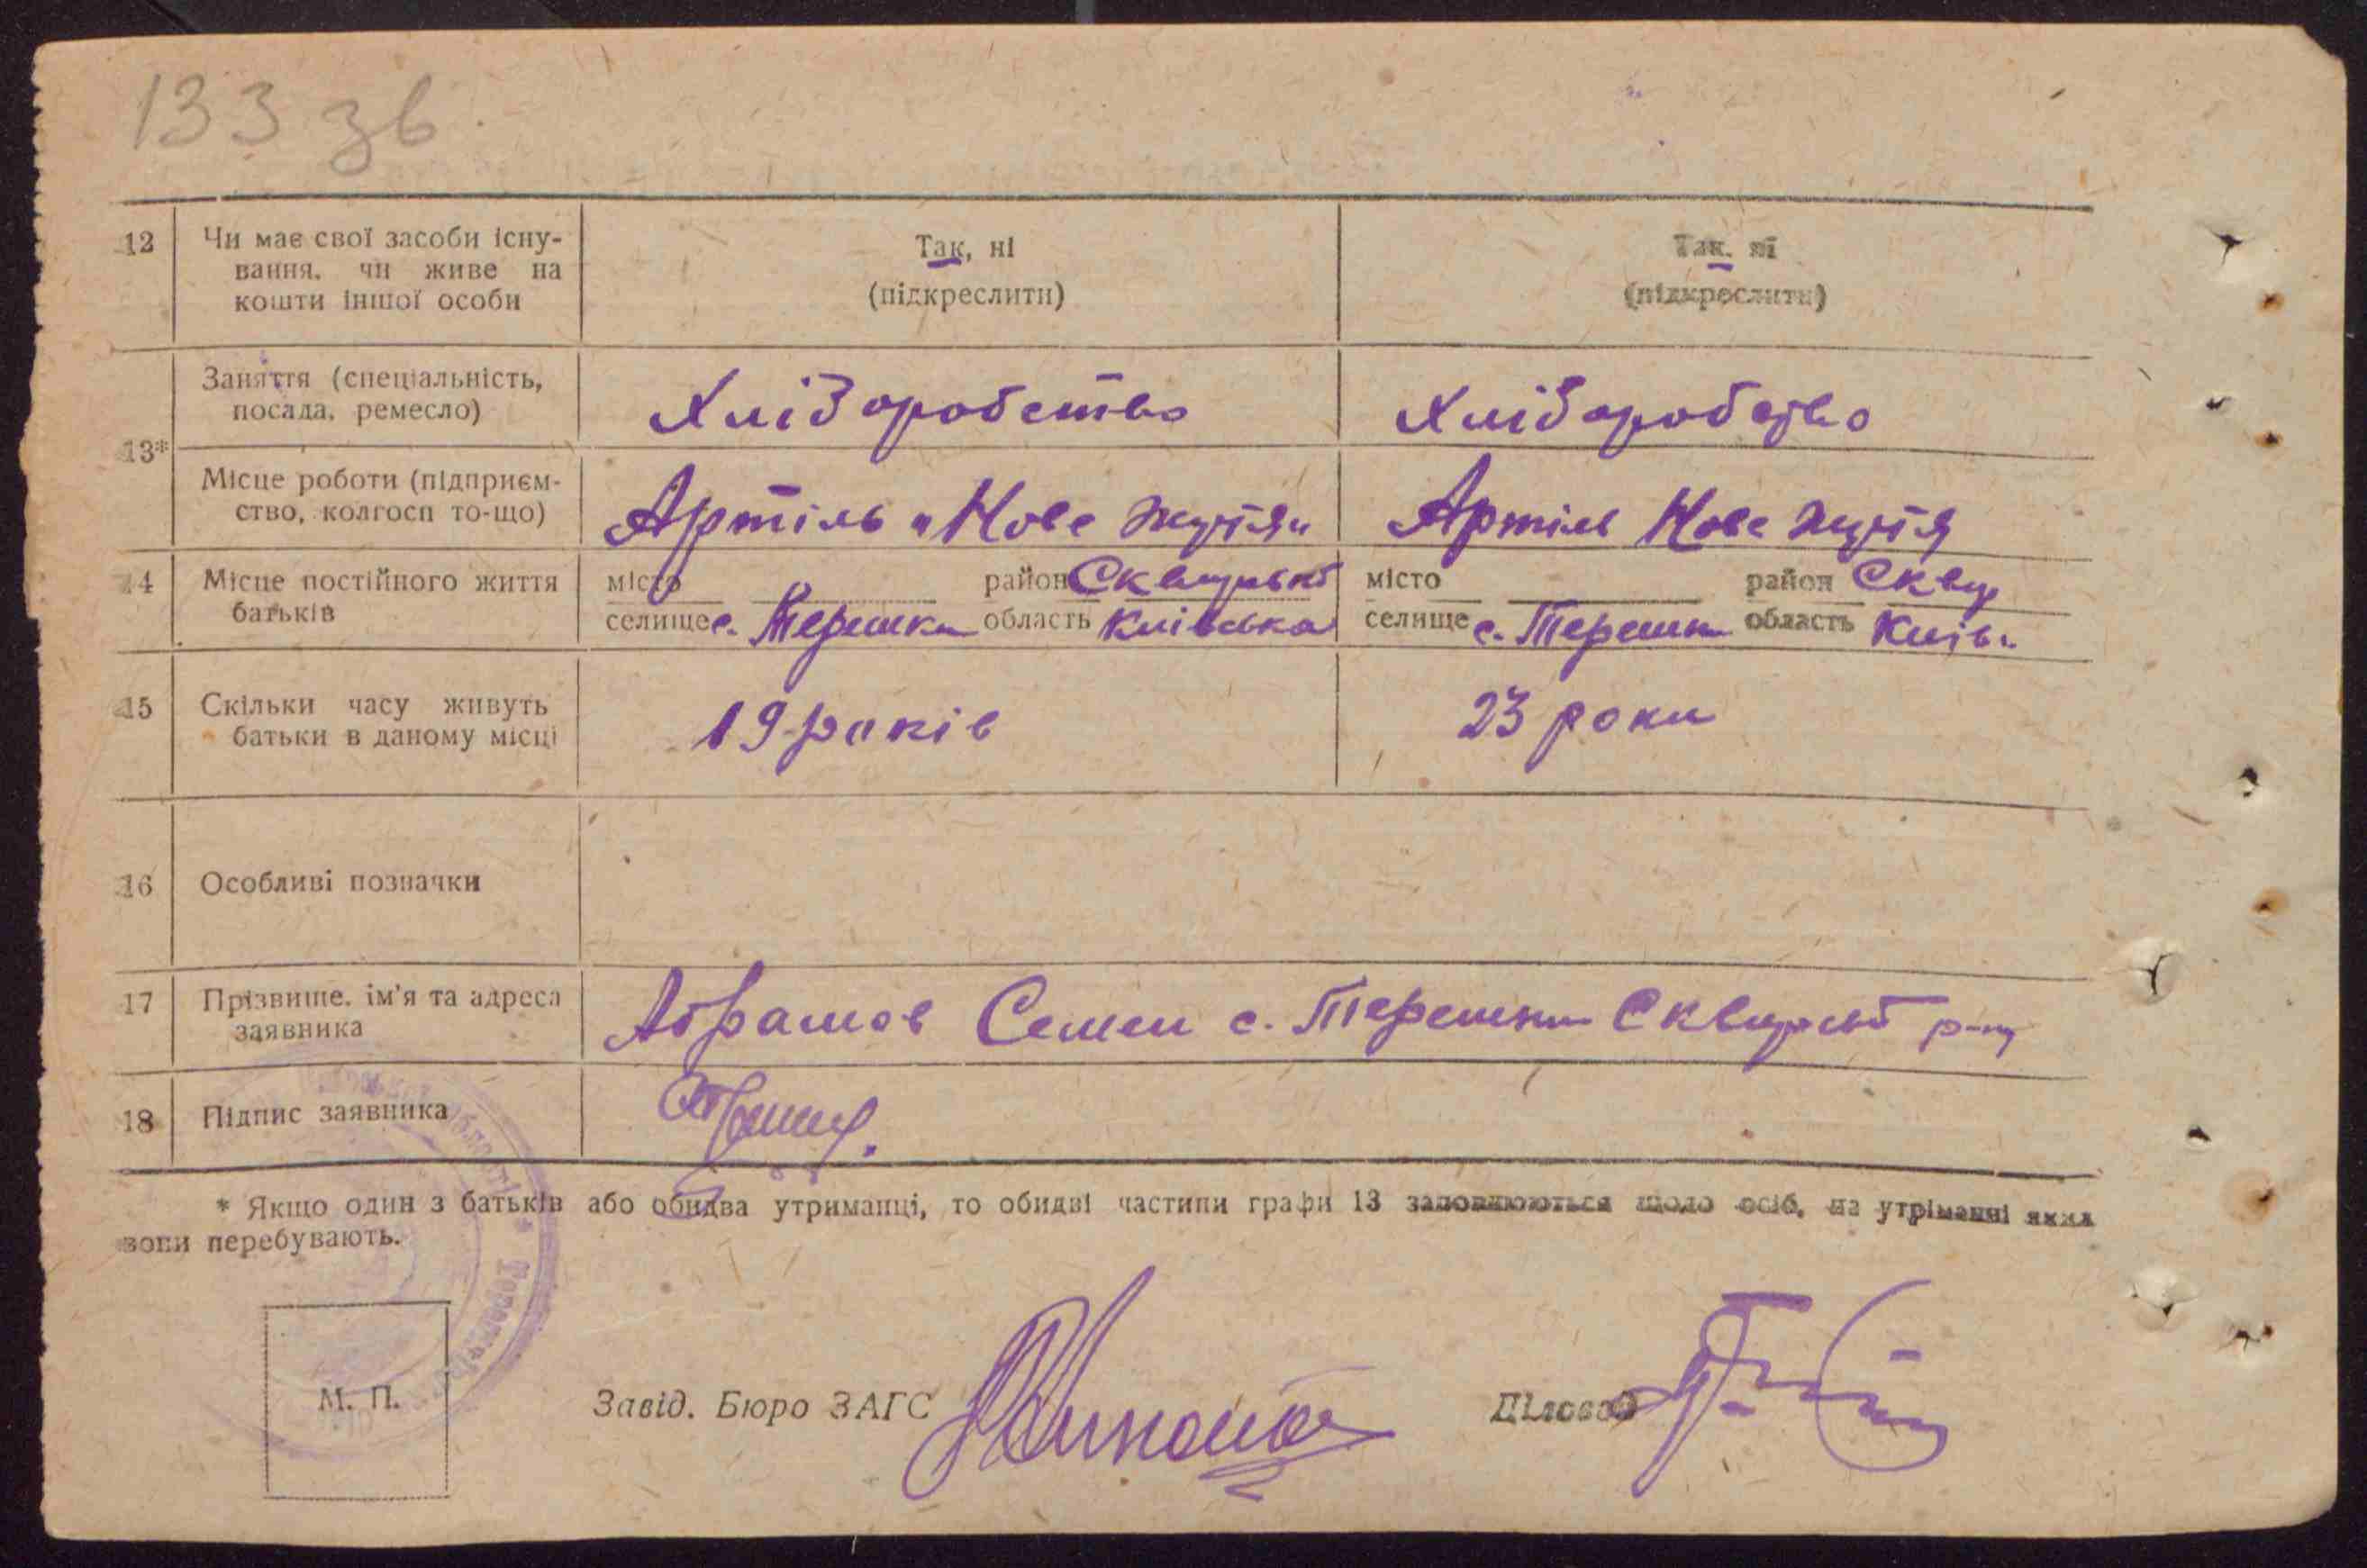 133 зв.
12 Чи має свої засоби існу-
вання, чи живе на
кошти іншої особи
Так, ні
(підкреслити)
Так, ні
(підкреслити)
13*
Заняття (спеціальність,
посада, ремесло)
Хліборобство
Хліборобство
Місце роботи (підприєм-
ство, колгосп то-що)
Артіль „Нове життя"
Артіль Нове життя
14 Місце постійного життя
батьків
місто район Сквирськ
селище с. Терешки область Київська
місто район Сквир
селище с. Терешки область Київ.
15 Скільки часу живуть
батьки в даному місці
19 років
23 роки
16 Особливі позначки
17 Прізвище, ім'я та адреса
заявника
Абрамов Семен с. Терешки Сквирськ р-ну
18 Підпис заявника
* Якщо один з батьків або обидва утриманці, то обидві частини графи 13 заповнюються щодо осіб, на утріманні яких
вони перебувають.
М. П.
Завід. Бюро ЗАГС
Діловод